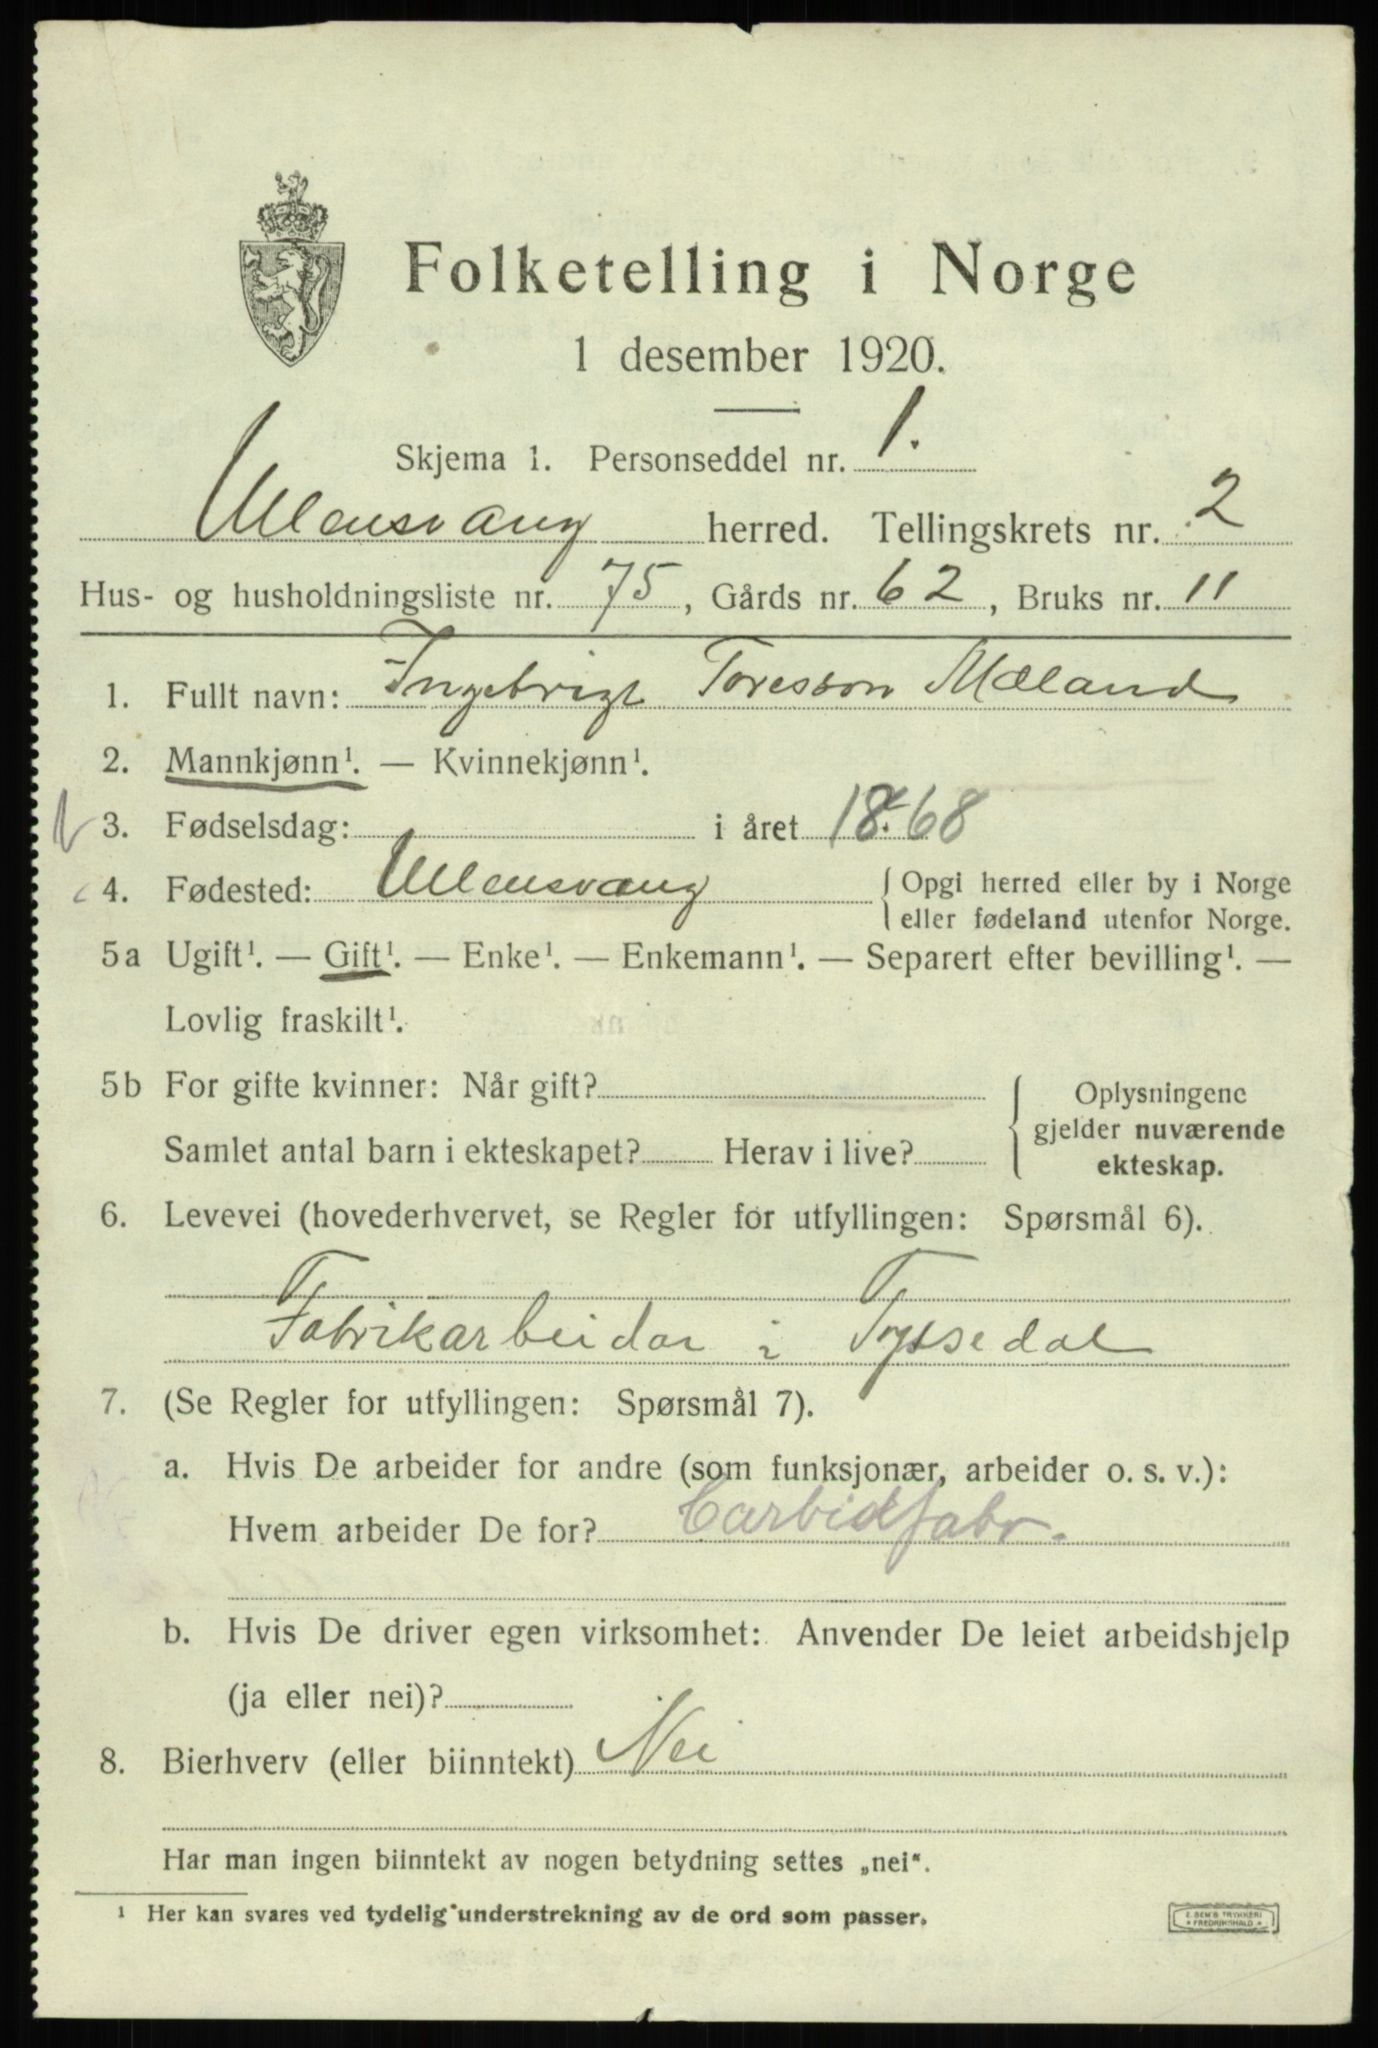 Folketelling i Norge
1 desember 1920.
Skjema 1. Personseddel nr. 1.
Ullensvang herred. Tellingskrets nr. 2
Hus- og husholdningsliste nr. 75, Gårds nr. 62, Bruks nr. 11
1. Fullt navn: Ingebrigt Toresson Mæland
2. Mannkjønn¹. — Kvinnekjønn¹.
3. Fødselsdag: i året 1868
4. Fødested: Ullensvang { Opgi herred eller by i Norge
eller fødeland utenfor Norge.
5a Ugift¹. — Gift¹. — Enke¹. — Enkemann¹. — Separert efter bevilling¹. —
Lovlig fraskilt¹.
5b For gifte kvinner: Når gift?
Samlet antal barn i ekteskapet? Herav i live?
{ Oplysningene
gjelder nuværende
ekteskap.
6. Levevei (hovederhvervet, se Regler for utfyllingen: Spørsmål 6).
Fabrikarbeidar i Tyssedal
7. (Se Regler for utfyllingen: Spørsmål 7).
a. Hvis De arbeider for andre (som funksjonær, arbeider o. s. v.):
Hvem arbeider De for? Carbidfabr.
b. Hvis De driver egen virksomhet: Anvender De leiet arbeidshjelp
(ja eller nei)?
8. Bierhverv (eller biinntekt) Nei
Har man ingen biinntekt av nogen betydning settes „nei“.
¹ Her kan svares ved tydelig understrekning av de ord som passer.
E. SEM'S TRYKKERI
* FREDRIKSHALD *